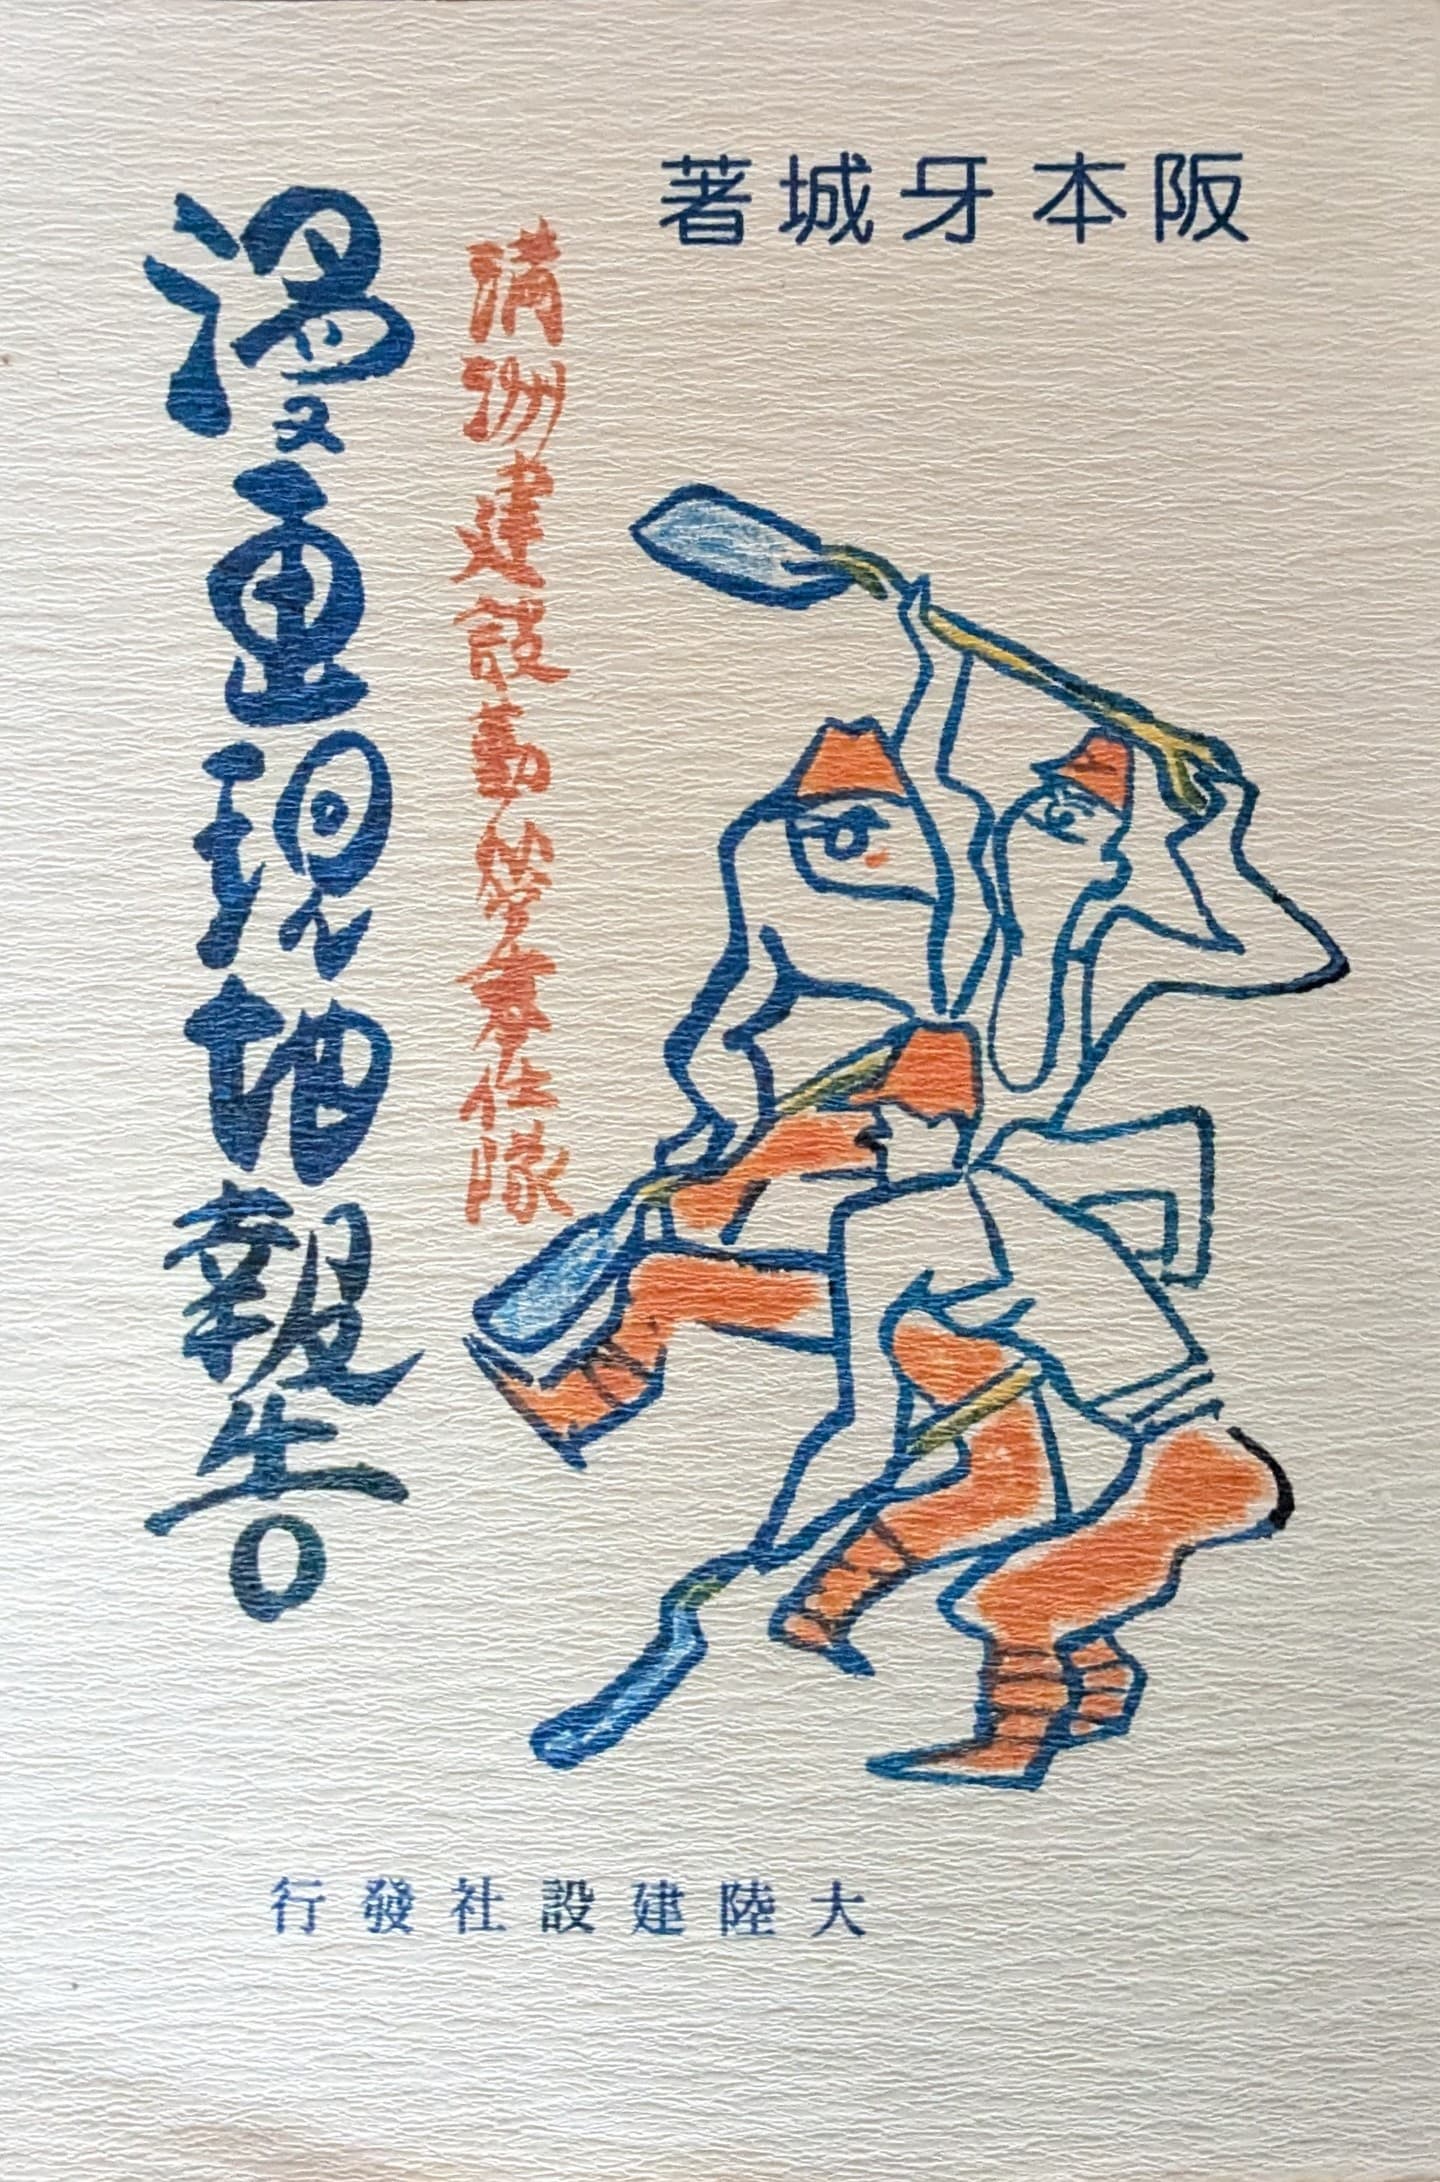 阪本牙城著
満洲建設勤勞奉仕隊
漫画現地報告
大陸建設社發行